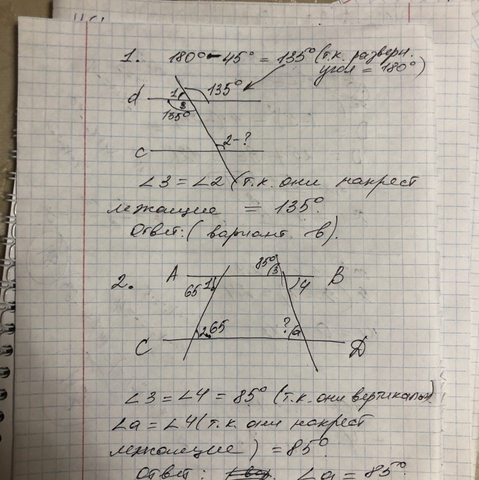 1. 180° - 45° = 135° (т.к. разверн.
угол = 180°)
d 1 135°
3
135°
c 2-?
∠3 = ∠2 (т.к. они накрест
лежащие = 135°.
Ответ: (вариант в).
2. A 65 1 85° 3 4 B
C 2 65 ? a D
∠3 = ∠4 = 85° (т.к. они вертикальн)
∠a = ∠4 (т.к. они накрест
лежащие) = 85°.
Ответ: ∠a = 85°.